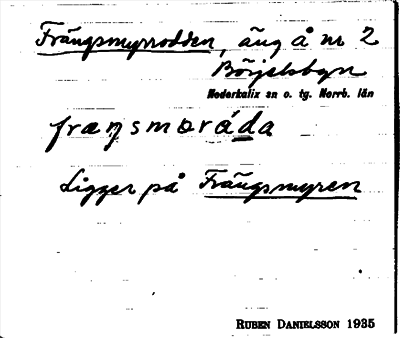 Frängsmyrrodden, äng å nr 2
Börjelsbyn
Nederkalix sn o. tg. Norrb. län
fræŋsmoráda
Ligger på Frängsmyren
RUBEN DANIELSSON 1935